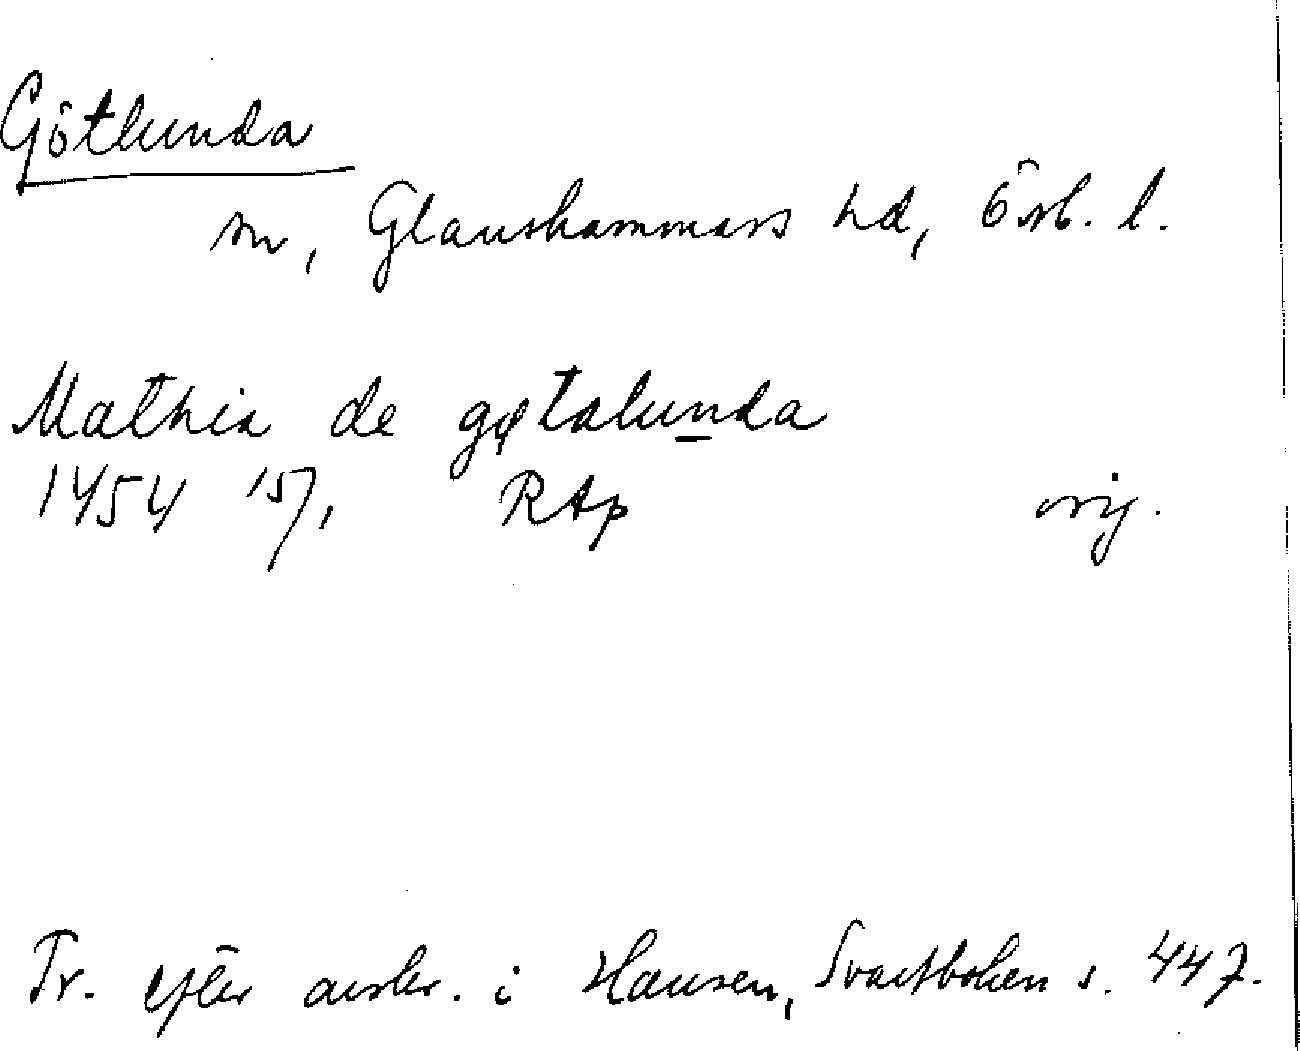 Götlunda
sn, Glanshammars hd, Örb. l.
Mathia de gøtalunda
1454 15/1 RAp orig.
Tr. efter avskr. i Hausen, Svartboken s. 447.